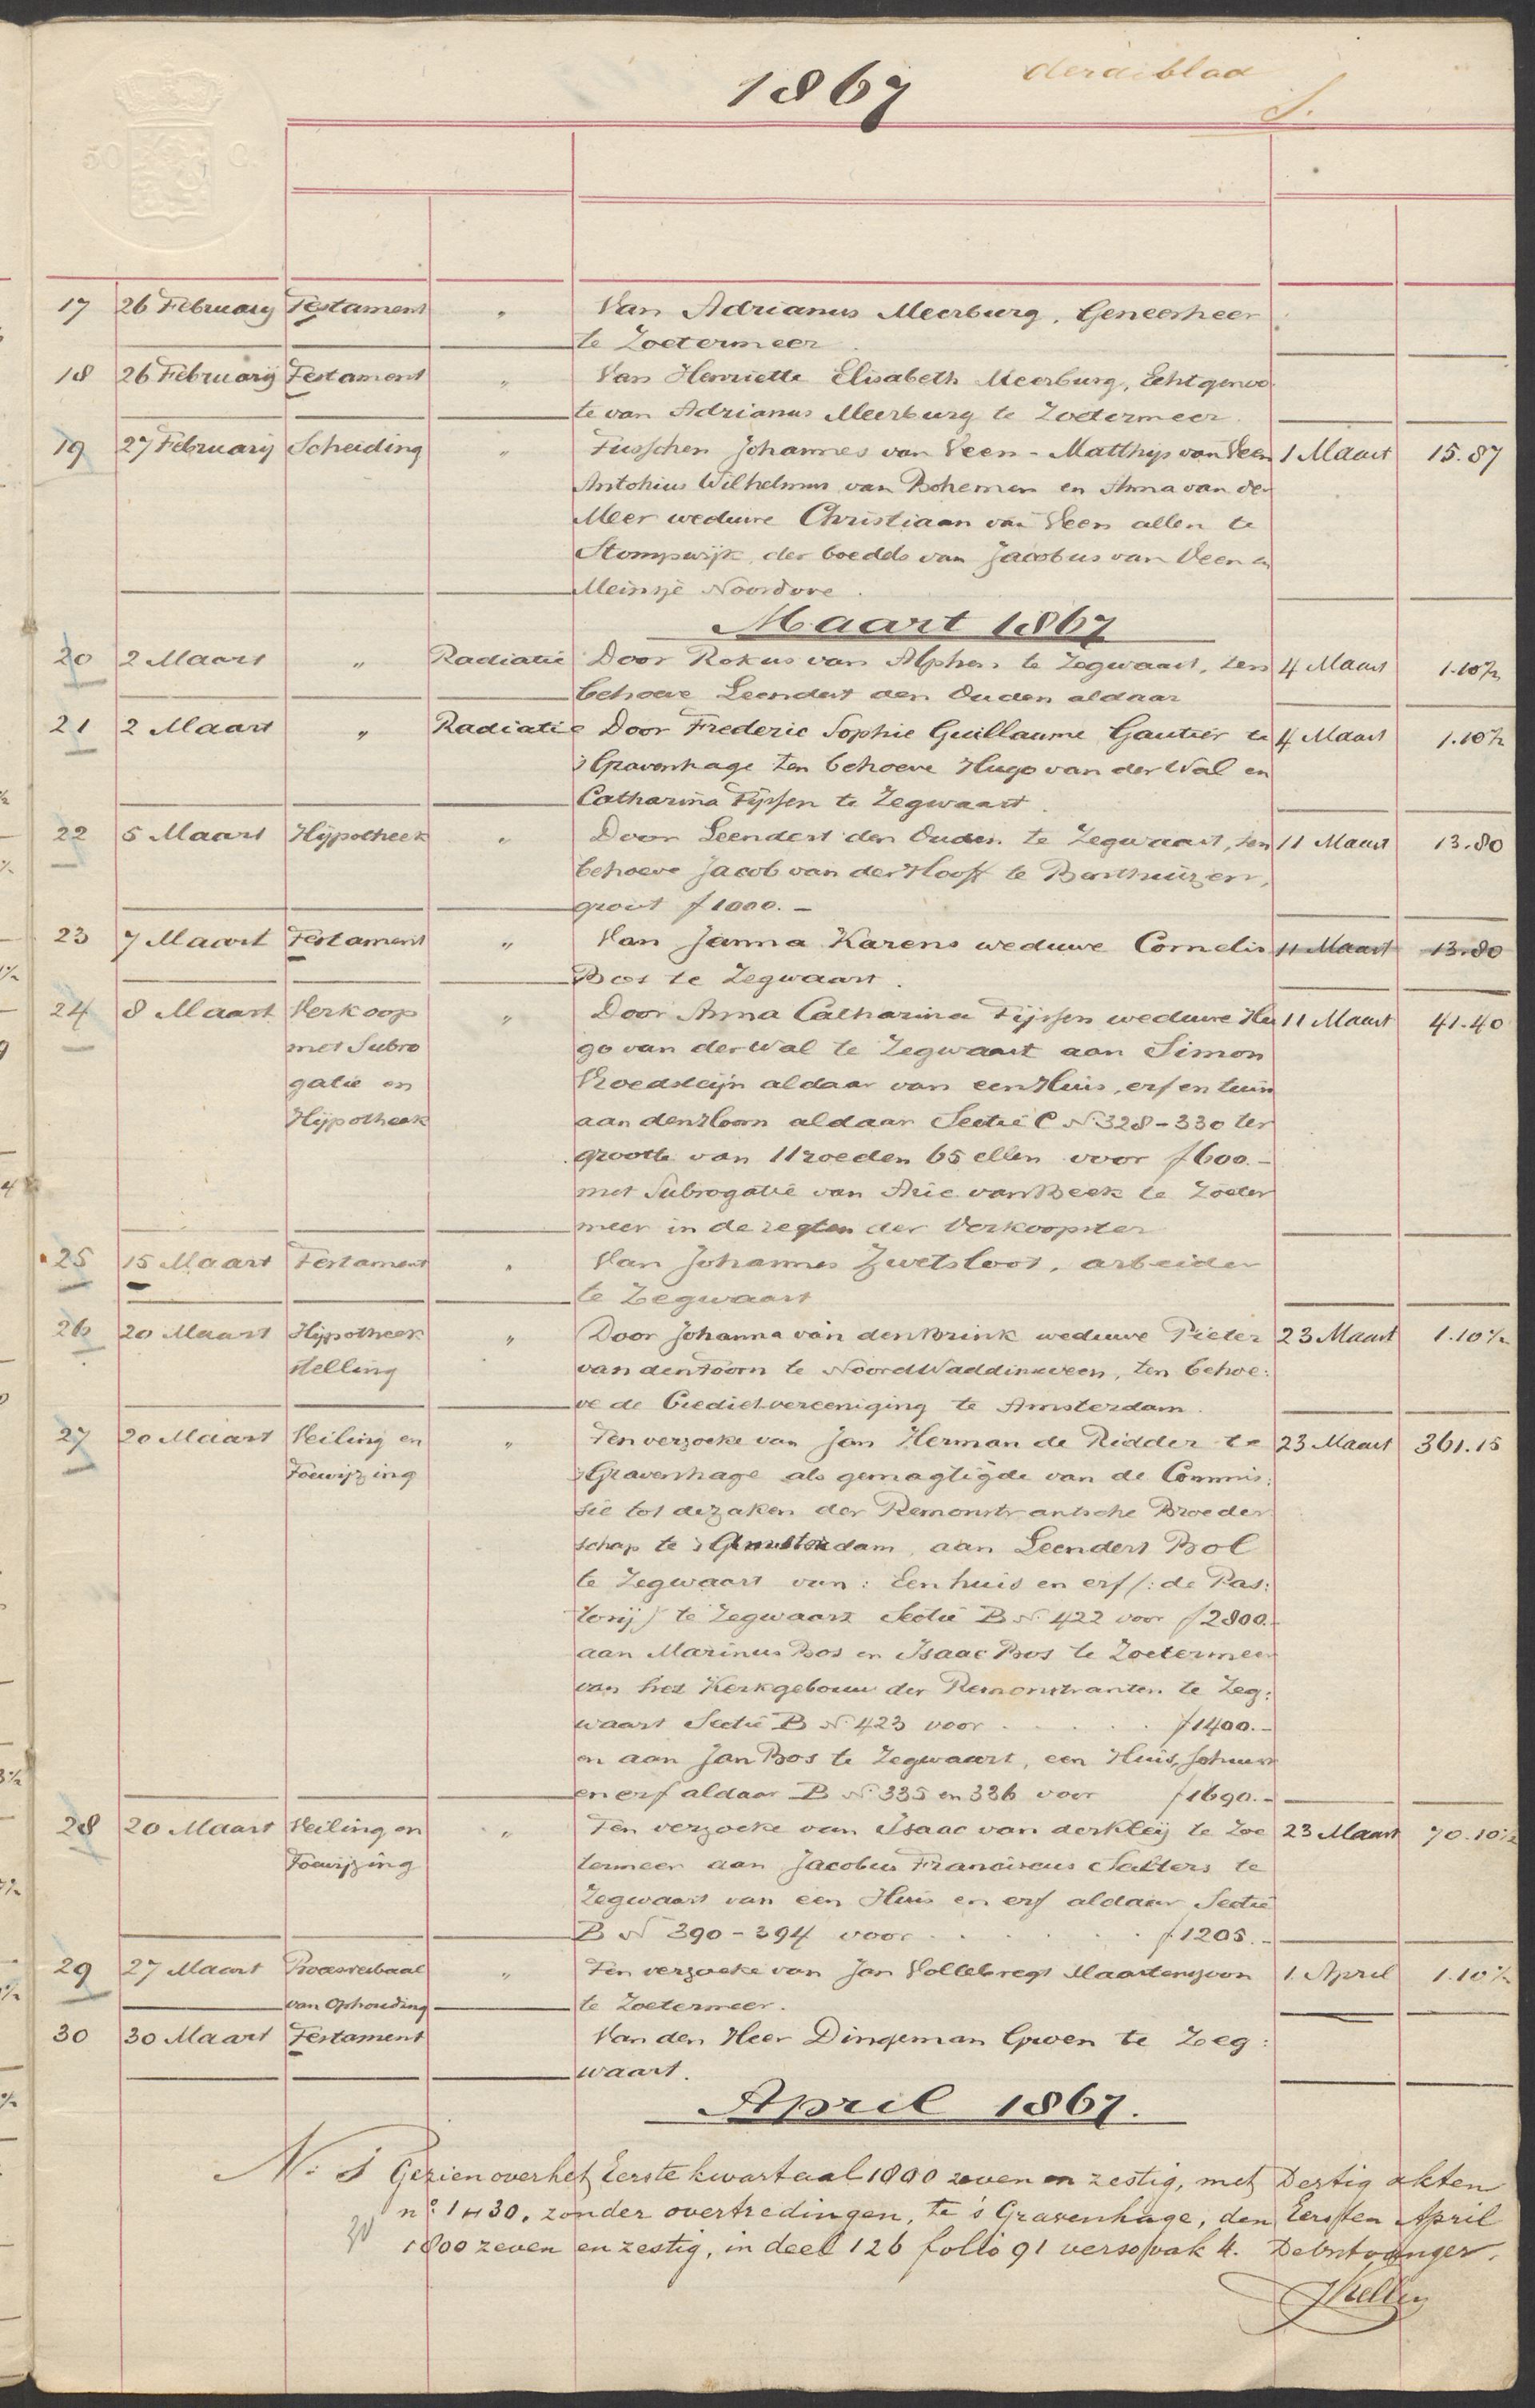 derdeblad
1867
S.
50 C.
17 26 February Testament " Van Adrianus Meerburg, Geneesheer
te Zoetermeer.
18 26 Februarij Testament " Van Henriette Elisabeth Meerburg, Echtgenoo-
te van Adrianus Meerburg te Zoetermeer.
19 27 Februarij Scheiding " Tusschen Johannes van Veen - Matthijs van Veen 1 Maart 15.87
Antohius Wilhelmus van Bohemen en Anna van der
Meer weduwe Christiaan van Veen allen te
Stompwijk, der boedels van Jacobus van Veen en
Meinsje Noordove.
Maart 1867
20 2 Maart " Radiatie Door Rokus van Alphen te Zegwaart, ten 4 Maart 1.10½
behoeve Leendert den Ouden aldaar
21 2 Maart " Radiatie Door Frederic Sophie Guillaume Gautier te 4 Maart 1.10½
's Gravenhage ten behoeve Hugo van der Wal en
Catharina Tijssen te Zegwaart.
22 5 Maart Hijpotheek " Door Leendert den Ouden te Zegwaart, ten 11 Maart 13.80
behoeve Jacob van der Hooft te Benthuizen,
groot f 1000.-
23 7 Maart Testament " Van Janna Karens weduwe Cornelis 11 Maart 13.80
Bos te Zegwaart.
24 8 Maart Verkoop " Door Anna Catharina Tijssen weduwe Hu 11 Maart 41.40
met Subro go van der Wal te Zegwaart aan Simon
gatie en Vroedsteijn aldaar van een Huis, erf en tuin
Hijpotheek aan den Hoorn aldaar Sectie C No. 328-330 ter
groote van 11 roeden 65 ellen voor f 600.-
met Subrogatie van Arie van Beek te Zoeter
meer in de regten der Verkoopster
25 15 Maart Testament " Van Johannes Zwetsloot, arbeider
te Zegwaart
26 20 Maart Hijpotheek " Door Johanna van den Brink weduwe Pieter 23 Maart 1.10½
stelling van den Toorn te Noord Waddinxveen, ten behoe:
ve de Credietvereeniging te Amsterdam.
27 20 Maart Veiling en " Ten verzoeke van Jan Herman de Ridder te 23 Maart 361.15
Toewijzing 's Gravenhage als gemagtigde van de Commis:
sie tot de zaken der Remonstrantsche Broeder
schap te Amsterdam, aan Leendert Bol
te Zegwaart van: Een huis en erf (: de Pas:
torij) te Zegwaart Sectie B No. 422 voor f 2800.-
aan Marinus Bos en Isaac Bos te Zoetermeer
van het Kerkgebouw der Remonstranten te Zeg:
waart Sectie B No. 423 voor . . . . . f 1400.-
en aan Jan Bos te Zegwaart, een Huis, schuur
en erf aldaar B No. 335 en 336 voor f 1690.-
28 20 Maart Veiling en " Ten verzoeke van Isaac van der Kleij te Zoe 23 Maart 70.10½
Toewijzing termeer aan Jacobus Franciscus Salters te
Zegwaart van een Huis en erf aldaar Sectie
B No 390-394 voor . . . . . . f 1205.-
29 27 Maart Procesverbaal " Ten verzoeke van Jan Vollebregt Maartenszoon 1 April 1.10½
van Ophouding te Zoetermeer.
30 30 Maart Testament Van den Heer Dingeman Groen te Zeg:
waart.
April 1867.
No. 1 Gezien over het Eerste kwartaal 1800 zeven en zestig, met Dertig akten
no. 1 H 30, zonder overtredingen, te 's Gravenhage, den Eersten April
30 1800 zeven en zestig, in deel 126 folio 91 verso vak 4. De Ontvanger.